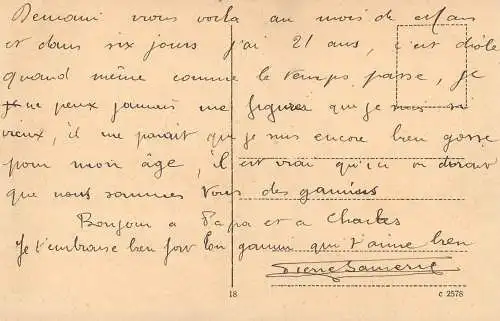 Demain nous voila au mois de Mars
et dans six jours j'ai 21 ans, c'est drôle
quand même comme le temps passe, je
ne peux jamais me figurer que je suis si
vieux, il me parait que je suis encore bien gosse
pour mon âge, il est vrai qu'ici on dirait
que nous sommes tous des gamins
Bonjour a Papa et a Charles
Je t'embrasse bien fort ton gamin qui t'aime bien
18
C 2578